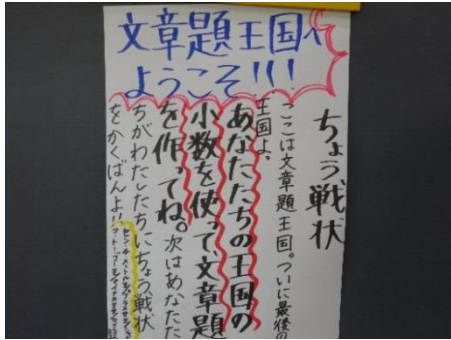 文章題王国へ
ようこそ!!!
ちょう戦状
ここは文章題王国。ついに最後の
王国よ。
あなたたちの王国の
小数を使って、文章題
を作ってね。次はあなたた
ちがわたしたちにちょう戦状
をかくばんよ!!